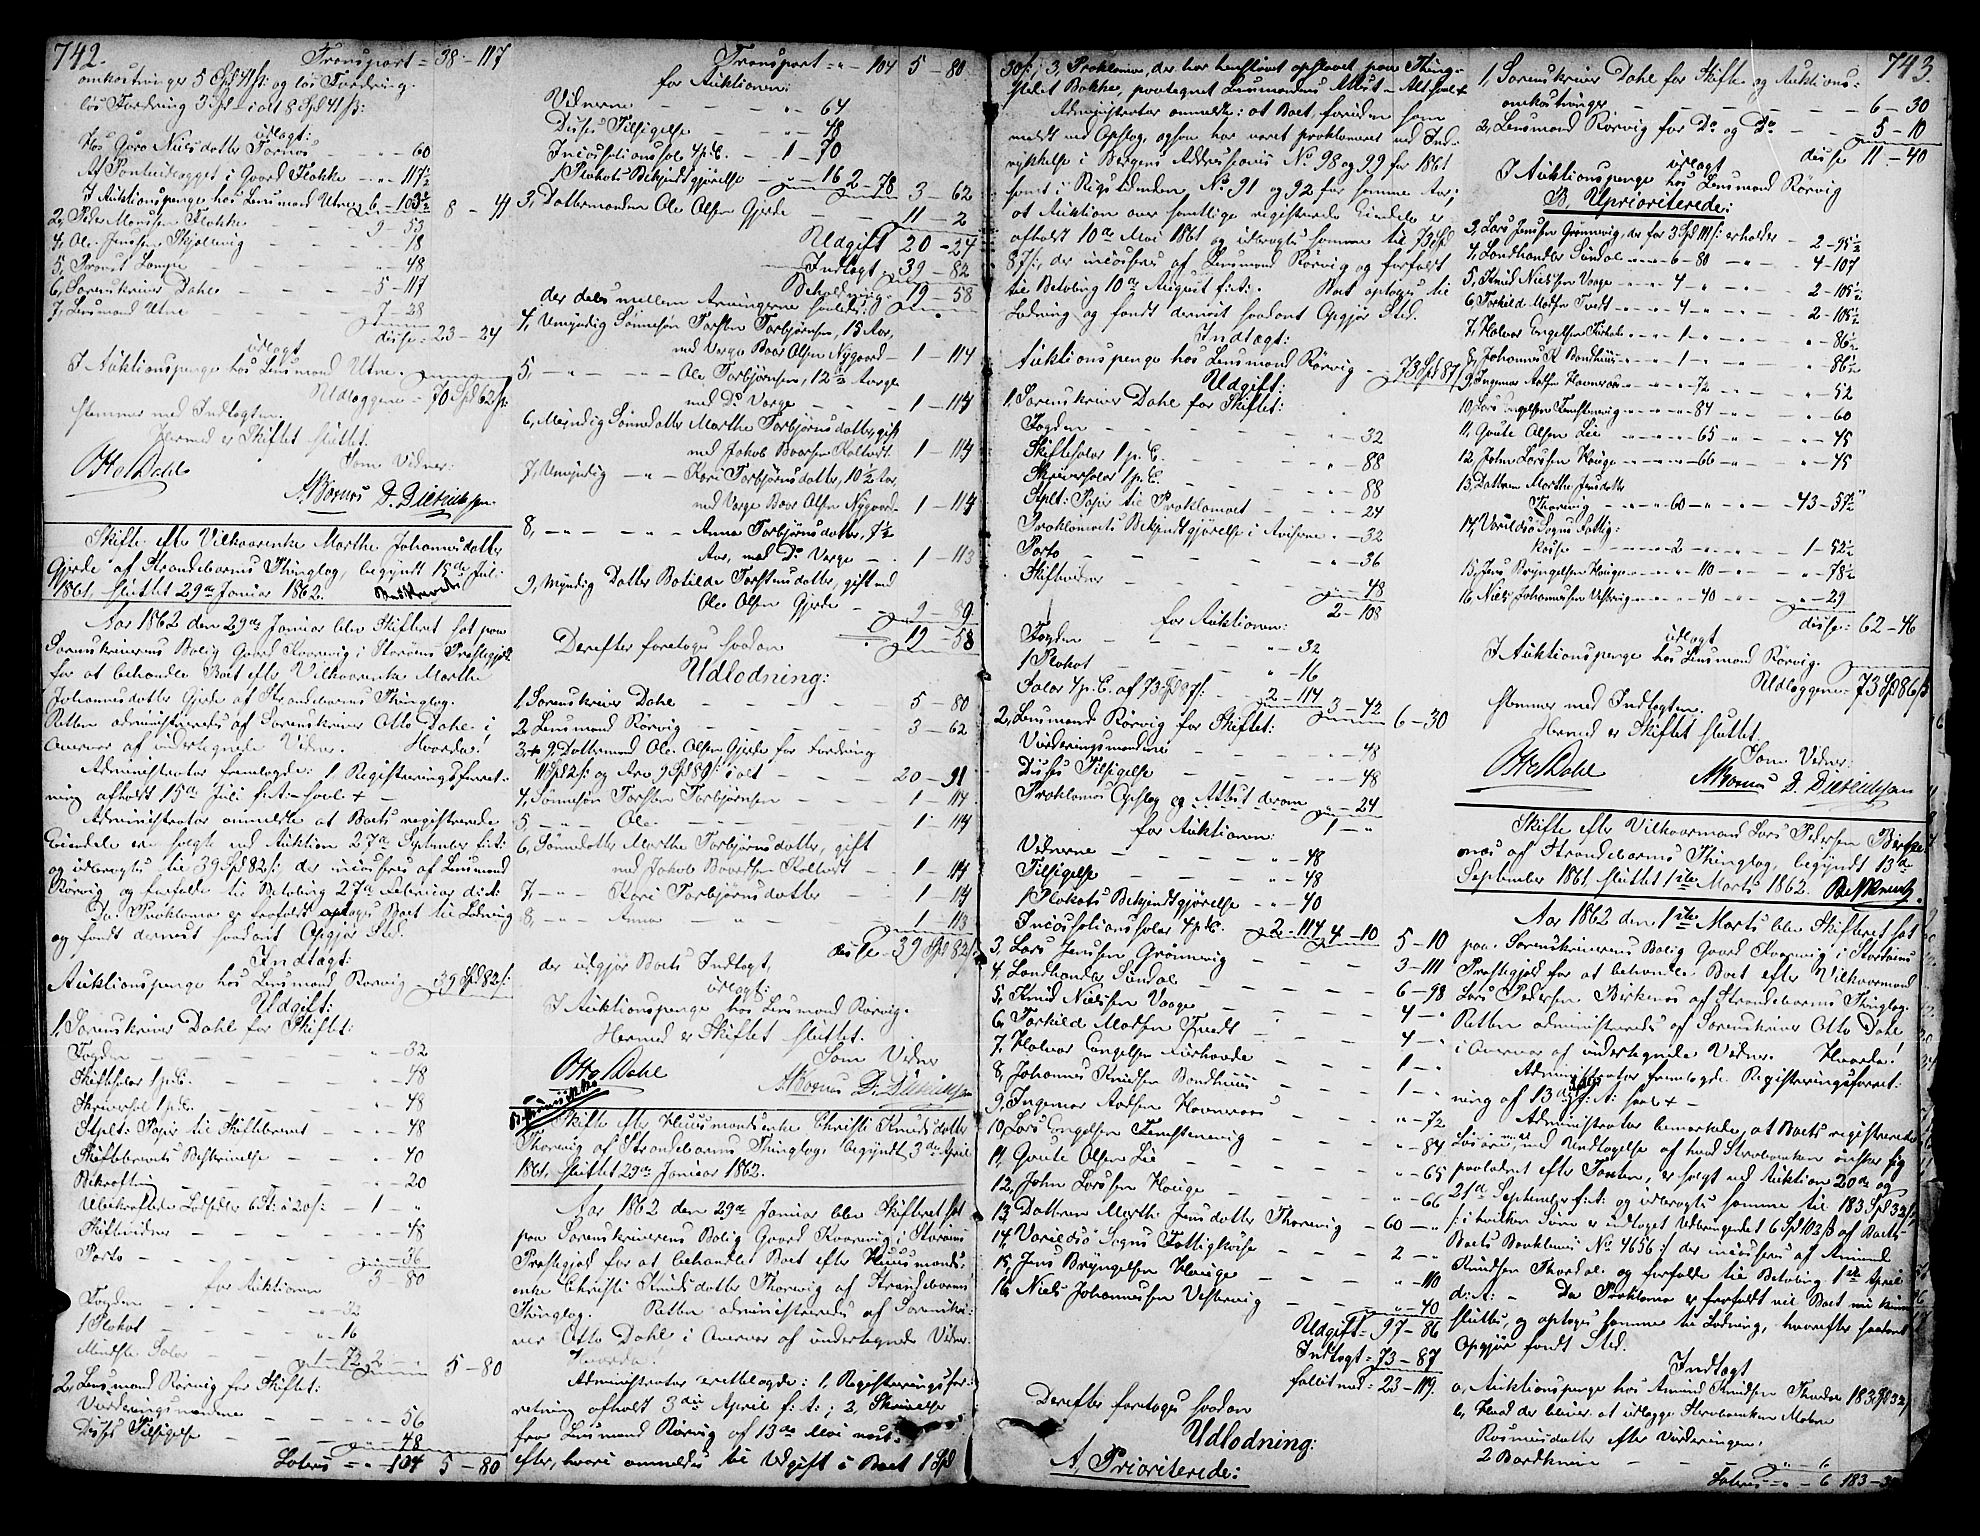 742.
Transport = 38 - 117
omkostninger 5 Spd 41 ß: og løs Fordring.
løs Fordring 3 Spd - i alt 8 Spd 41 ß:
udlagt:
Hos Guro Nielsdatter - - 60
I Auktionspenge hos Lensmand Utne 6 - 103½
8 - 41
2, Peder Monsen Flakke - - 9 - 53
4, Ole Jensen Skjelnevig - - 18
5, Provst Lange - - 48
6, Sorenskriver Dahl - - 5 - 117
7, Lensmand Utne - - 7 - 28
disse = 23 - 24
udlagt
I Auktionspenge hos Lensmand Utne.
Udlæggene = 70 Spd 62 ß:
stemmer med Indtægten.
Hermed er Skiftet sluttet.
Otto Dahl
Som Vidner:
A Bornes D. Didrichsen
Skifte efter Vilkaarenke Marthe Johannesdatter
Gjerde af Strandebarms Thinglag, begyndt 15de Juli
1861, sluttet 29de Januar 1862.
Aar 1862 den 29de Januar blev Skifteret sat paa
Sorenskriverens Bolig Gaard Kaarevig i Storøens Præstegjeld
for at behandle Boet efter Vilkaarenke Marthe
Johannesdatter Gjerde af Strandebarms Thinglag.
Retten administreredes af Sorenskriver Otto Dahl i
Overvær af undertegnede Vidner. Hvorda!
Administrator fremlagde: 1, Registreringsforret-
ning afholdt 15de Juli f:A - saal +
Administrator anmeldte at Boets registrerede
Eiendele ere solgte ved Auktion 27de September f:A:
og udbragte til 39 Spd 82 ß:, der incasseres af Lensmand
Rørvig og forfalde til Betaling 27de Februar d:A:
Da Proklama er forfaldt optages Boet til Lodning
og fandt dernæst saadant Opgjør Sted.
Indtægt:
Auktionspenge hos Lensmand Rørvig - 39 Spd 82 ß:
Udgift:
1, Sorenskriver Dahl for Skiftet:
Fogden - - 32
Skiftesalær 1 p.C. - - 48
Skriversal. 1 p.C. - - 48
Stplt: Papir til Skiftebrevet - - 48
Skiftebrevets Beskrivelse - - 40
Bekræftning - - 20
Ubekræftede Lodsedler 6 St: à 20 ß: - 1 -
Skiftevidner - - 48
Porto - - 36
3 - 80
for Auktionen
Fogden - - 32
1 Plakat - - 16
Mindste Salær - 1 - 72 2 -
5 - 80
2, Lensmand Rørvig for Skiftet:
Vurderingsmændene - - 56
Disses Tilsigelse - - 48
Lateris = - 104 5 - 80
Transport = - 104 5 - 80
for Auktionen:
Vidnerne - - 64
Disses Tilsigelse - - 48
Incassationssal. 4 p.C. - 1 - 70
1 Plakats Bekjendtgjørelse - - 16 2 - 78
3 - 62
3, Dattermanden Ole Olsen Gjerde - 11 - 2
Udgift 20 - 24
Indtægt 39 - 82
Beholdning 19 - 58
der deles mellem Arvingerne saaledes:
4, Umyndig Sønnesøn Torsten Torbjørnsen, 15 Aar,
med Verge Baar Olsen Nygaard - 1 - 114
5, - - Ole Torbjørnsen, 12½ Aar gl.
med Do Verge - - 1 - 114
6, Myndig Sønnedatter Marthe Torbjørnsdatter, gift
med Jakob Baarsen Kaltvedt - 1 - 114
7, Umyndig - Kari Torbjørnsdatter, 10½ Aar,
med Verge Baar Olsen Nygaard - 1 - 114
8, - - Anna Torbjørnsdatter, 7½
Aar, med Do Verge - - 1 - 113
9, Myndig Datter Botilde Torstensdatter, gift med
Ole Olsen Gjerde - - 9 - 89
19 - 58
Derefter foretoges saadan
Udlodning:
1, Sorenskriver Dahl - - 5 - 80
2, Lensmand Rørvig - - 3 - 62
3, + 9, Dattermand Ole Olsen Gjerde for Fordring
11 Spd 2 ß: og Arv 9 Spd 89 ß: i alt - 20 - 91
4, Sønnesøn Torsten Torbjørnsen - 1 - 114
5, - Ole - - 1 - 114
6, Sønnedatter Marthe Torbjørnsdatter, gift
med Jakob Baardsen Kaltvedt - 1 - 114
7, - Kari Torbjørnsdatter - 1 - 114
8, - Anna - 1 - 113
disse - 39 Spd 82 ß:
der udgjør Boets Indtægt,
udlagt:
I Auktionspenge hos Lensmand Rørvig.
Hermed er Skiftet sluttet.
Otto Dahl
Som Vidner
A Bornes D. Didrichsen
Skifte efter Huusmandsenke Christi Knudsdatter
Thorvig af Strandebarms Thinglag, begyndt 3die April
1861, sluttet 29de Januar 1862.
Aar 1862 den 29de Januar blev Skifteret sat
paa Sorenskriverens Bolig Gaard Kaarevig i Storøens
Præstegjeld for at behandle Boet efter Huusmands-
enke Christi Knudsdatter Thorvig af Strandebarms
Thinglag. Retten administreredes af Sorenskri-
ver Otto Dahl i Overvær af undertegnede Vidner.
Hvorda!
Administrator fremlagde: 1, Registreringsfor-
retning afholdt 3die April f:A:; 2, Skrivelse
fra Lensmand Rørvig af 13de Mai næst-
efter, hvori anmeldes til Udgift i Boet 1 Spd
743.
30 ß:; 3, Proklama, der har henstaaet opslaaet paa Thing-
stedet Bakke, paategnet Lensmandens Attest - Alt saal +
Administrator anmeldte: at Boet, foruden som
meldt ved Opslag, ogsaa har været proklameret ved Ind-
rykkelse i Bergens Addresseavis No 98 og 99 for 1861
samt i Rigstidenden No 91 og 92 for samme Aar;
at Auktion over samtlige registrerede Eiendele er
afholdt 10de Mai 1861 og udbragtes samme til 73 Spd
87 ß:, der incasseres af Lensmand Rørvig og forfaldt
til Betaling 10de August f:A:. Boet optoges til
Lodning og fandt dernæst saadant Opgjør Sted.
Indtægt:
Auktionspenge hos Lensmand Rørvig - 73 Spd 87 ß
Udgift:
1, Sorenskriver Dahl for Skiftet:
Fogden - - 32
Skiftesalær 1 p.C. - - 88
Skriversalær 1 p.C. - - 88
Stplt: Papir til Proklamaet - - 24
Proklamaets Bekjendtgjørelse i Aviserne - 32
Porto - - 36
Skiftevidner - - 48
2 - 108
for Auktionen:
Fogden - - 32
1 Plakat - - 16
Salær 4 p.C. af 73 Spd 87 ß: - 2 - 114 3 - 42
6 - 30
2, Lensmand Rørvig for Skiftet:
Vurderingsmændene - - 48
Disses Tilsigelse - - 48
Proklamas Opslag og Attest derom - - 24
1 -
for Auktionen:
Vidnerne - - 48
Tilsigelse - - 48
1 Plakats Bekjendtgjørelse - - 40
Incassationssalær 4 p.C. - 2 - 114 4 - 10
5 - 10
3, Lars Jensen Grønnevig - - 3 - 111
4, Landhandler Sundal - - 6 - 98
5, Knud Nielsen Vaage - - 4 -
6, Torkild Madsen Tvedt - - 4 -
7, Halvor Engelsen - - 1 -
8, Johannes Knudsen Bondhuus - - 1 -
9, Ingemar Aadsen - - 72
10, Lars Engelsen - - 84
11, Goute Olsen Lie - - 65
12, John Larssen Hauge - - 66
13, Datteren Marthe Jensdatter Thorvig - 60 -
14, Varildsø Sogns Fattigkasse - 2 -
15, Jens Bryngelsen Hauge - - 110
16, Niels Johannessen Vestrevig - - 40
Udgift = 97 - 86
Indtægt = 73 - 87
fallit med = 23 - 119.
Derefter foretoges saadan
Udlodning:
A, Prioriterede:
1, Sorenskriver Dahl for Skifte og Auktions-
omkostninger - - 6 - 30
2, Lensmand Rørvig for Do og Do - 5 - 10
disse 11 - 40
udlagt
I Auktionspenge hos Lensmand Rørvig
B, Uprioriterede:
3, Lars Jensen Grønnevig, der for 3 Spd 111 ß: erholder - 2 - 95½
4, Landhandler Sundal - 6 - 80 - 4 - 107
5, Knud Nielsen Vaage - 4 - - 2 - 105½
6, Torkild Madsen Tvedt - 4 - - 2 - 105½
7, Halvor Engelsen - 1 - - 86½
8, Johannes K. Bondhuus - 1 - - 86½
9, Ingemar Aadsen - 72 - 52
10, Lars Engelsen - 84 - 60
11, Goute Olsen Lie - 65 - 45
12, John Larssen Hauge - 66 - 45
13, Datteren Marthe Jensdatter
Thorvig - 60 - - 43 - 57½
14, Varildsø Sogns Fattig-
kasse - 2 - - 1 - 52½
15, Jens Bryngelsen Hauge - 110 - 78½
16, Niels Johannessen Vestrevig - 40 - 29
disse = 62 - 46
udlagt
I Auktionspenge hos Lensmand Rørvig.
Udlæggene = 73 Spd 86 ß
stemmer med Indtægten.
Hermed er Skiftet sluttet.
Otto Dahl
Som Vidner:
A Bornes D. Didrichsen
Skifte efter Vilkaarmand Lars Pedersen Birke-
næs af Strandebarms Thinglag, begyndt 13de
September 1861, sluttet 1ste Marts 1862.
Aar 1862 den 1ste Marts blev Skifteret sat
paa Sorenskriverens Bolig Gaard Kaarevig i Storøens
Præstegjeld for at behandle Boet efter Vilkaarmand
Lars Pedersen Birkenæs af Strandebarms Thinglag.
Retten administreredes af Sorenskriver Otto Dahl
i Overvær af undertegnede Vidner. Hvorda!
Administrator fremlagde Registreringsforret-
ning af 13de Septbr f:A: saal +
Administrator bemærkede, at Boets registrerede
Løsøre, med Undtagelse af hvad Stervboenken ønsker sig
udlagt efter Taxten, er solgt ved Auktion 20de og
21de September f:A: og udbragtes samme til 183 Spd 32 ß
/: i hvilken Sum er indtaget Udbringendet 6 Spd 102 ß af Boets
No 4656 :/ der incasseres af Amund
Knudsen Thordal og forfalde til Betaling 1ste April
d:A: - Da Proklama er forfaldt vil Boet nu kunne
sluttes, og optoges samme til Lodning, hvorefter saadant
Opgjør fandt Sted.
Indtægt
a, Auktionspenge hos Amund Knudsen Thordal 183 Spd 32 ß
b, Hvad der bliver at udlægge Stervboenken Malene
Rasmusdatter efter Vurderingen:
2 Bordknive - - 6
Lateris = - 6 183 - 32